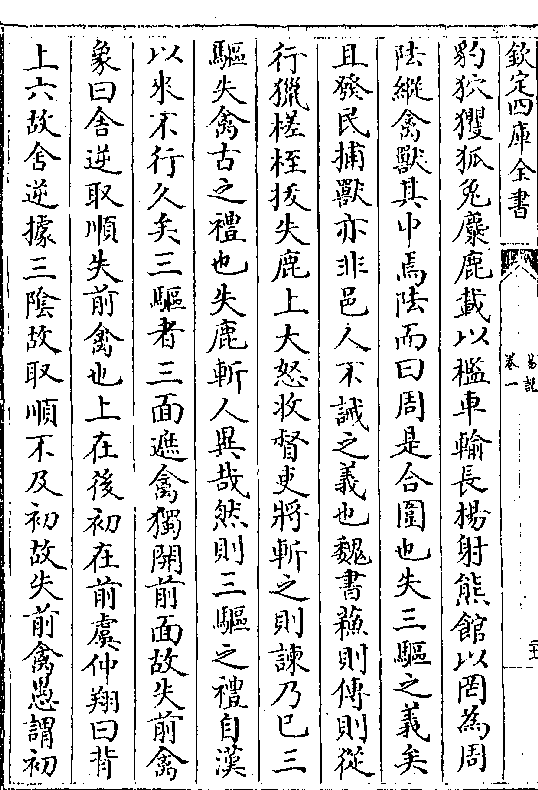 欽定四庫全書
易說
卷一
豹狖玃狐兔麋鹿載以檻車輸長楊射熊館以罔為周
阹縱禽獸其中焉阹而曰周是合圍也失三驅之義矣
且發民捕獸亦非邑人不誡之義也魏書蘇則傳則從
行獵槎桎拔失鹿上大怒收督吏將斬之則諫乃已三
驅失禽古之禮也失鹿斬人異哉然則三驅之禮自漢
以來不行久矣三驅者三面遮禽獨開前面故失前禽
象曰舍逆取順失前禽也上在後初在前虞仲翔曰背
上六故舍逆據三陰故取順不及初故失前禽愚謂初